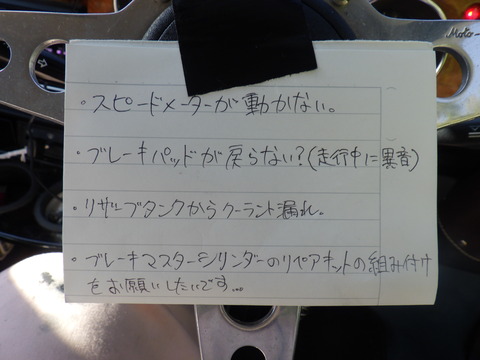 ・スピードメーターが動かない。
・ブレーキパッドが戻らない?(走行中に異音)
・リザーブタンクからクーラント漏れ。
・ブレーキマスターシリンダーのリペアキットの組み付け
をお願いしたいです...
Moto-